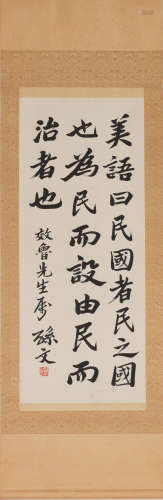 美語曰民國者民之國
也為民而設由民而
治者也
效魯先生屬
孫文